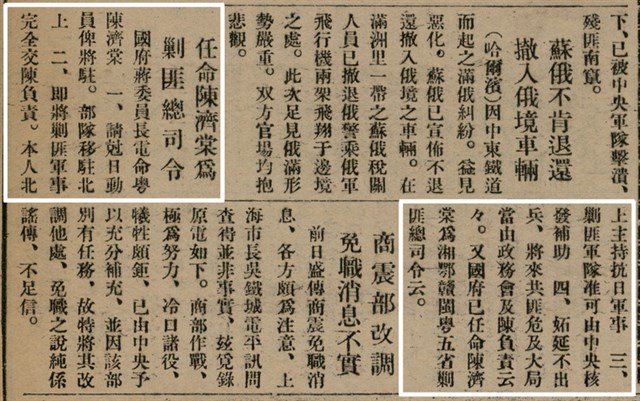 下、已被中央軍隊擊潰、
殘匪南竄。
蘇俄不肯退還
撤入俄境車輛
（哈爾濱）因中東鐵道
而起之滿俄糾紛。益見
惡化。蘇俄已宣佈不退
還撤入俄境之車輛。在
滿洲里一帶之蘇俄稅關
人員已撤退俄警乘俄軍
飛行機兩架飛翔于邊境
之處。此次足見俄滿形
勢嚴重。双方官場均抱
悲觀。
任命陳濟棠爲
剿匪總司令
國府蔣委員長電命粵
陳濟棠 一、請尅日動
員俾將駐。部隊移駐北
上 二、即將剿匪軍事
完全交陳負責。本人北
上主持抗日軍事 三、
剿匪軍隊准可由中央核
發補助 四、妬延不出
兵、將來共匪危及大局
當由政務會及陳負責云
々。又國府已任命陳濟
棠爲湘鄂贛閩粵五省剿
匪總司令云。
商震部改調
免職消息不實
前日盛傳商震免職消
息、各方頗爲注意、上
海市長吳鐵城電平訊問
查得並非事實、茲覓錄
原電如下。商部作戰、
極爲努力、冷口諸役、
犧牲頗鉅、已由中央予
以充分補充、並因該部
別有任務、故特將其改
調他處、免職之說純係
謠傳、不足信。